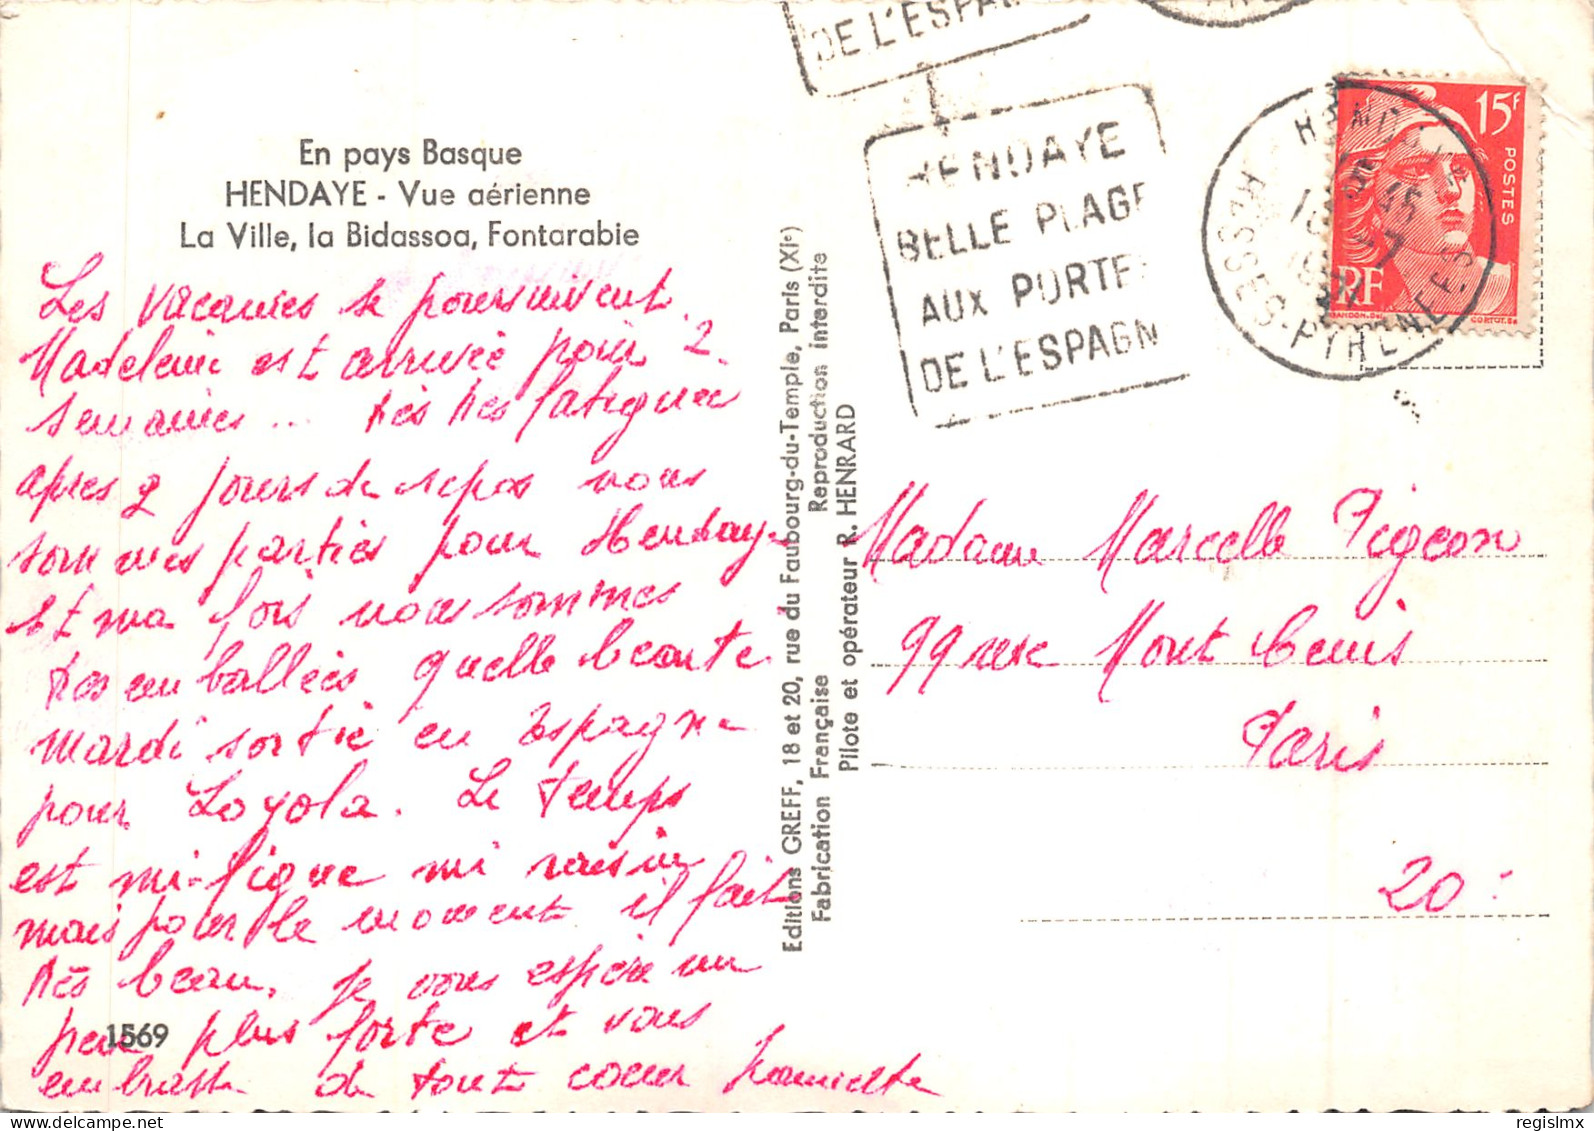 En pays Basque
HENDAYE - Vue aérienne
La Ville, la Bidassoa, Fontarabie
Les vacances se poursuivent.
Madeleine est arrivée pour 2
semaines... très très fatiguée
après 2 jours de repos nous
sommes parties pour Hendaye
et ma fois nous sommes
très emballées quelle beauté
mardi sortie en Espagne
pour Loyola. Le temps
est mi-figue mi raisin
mais pour le moment il fait
très beau, je vous espère un
peu plus forte et vous
embrasse de tout coeur Henriette
1569
Editions GREFF, 18 et 20, rue du Faubourg-du-Temple, Paris (XIe)
Fabrication Française Reproduction interdite
Pilote et opérateur R. HENRARD
DE L'ESPA
HENDAYE
BELLE PLAGE
AUX PORTE
DE L'ESPAGN
HENDAYE
BASSES-PYRENEES
15F
POSTES
RF
Madame Marcelle Pigeon
99 rue Mont Cenis
Paris
20
regislmx